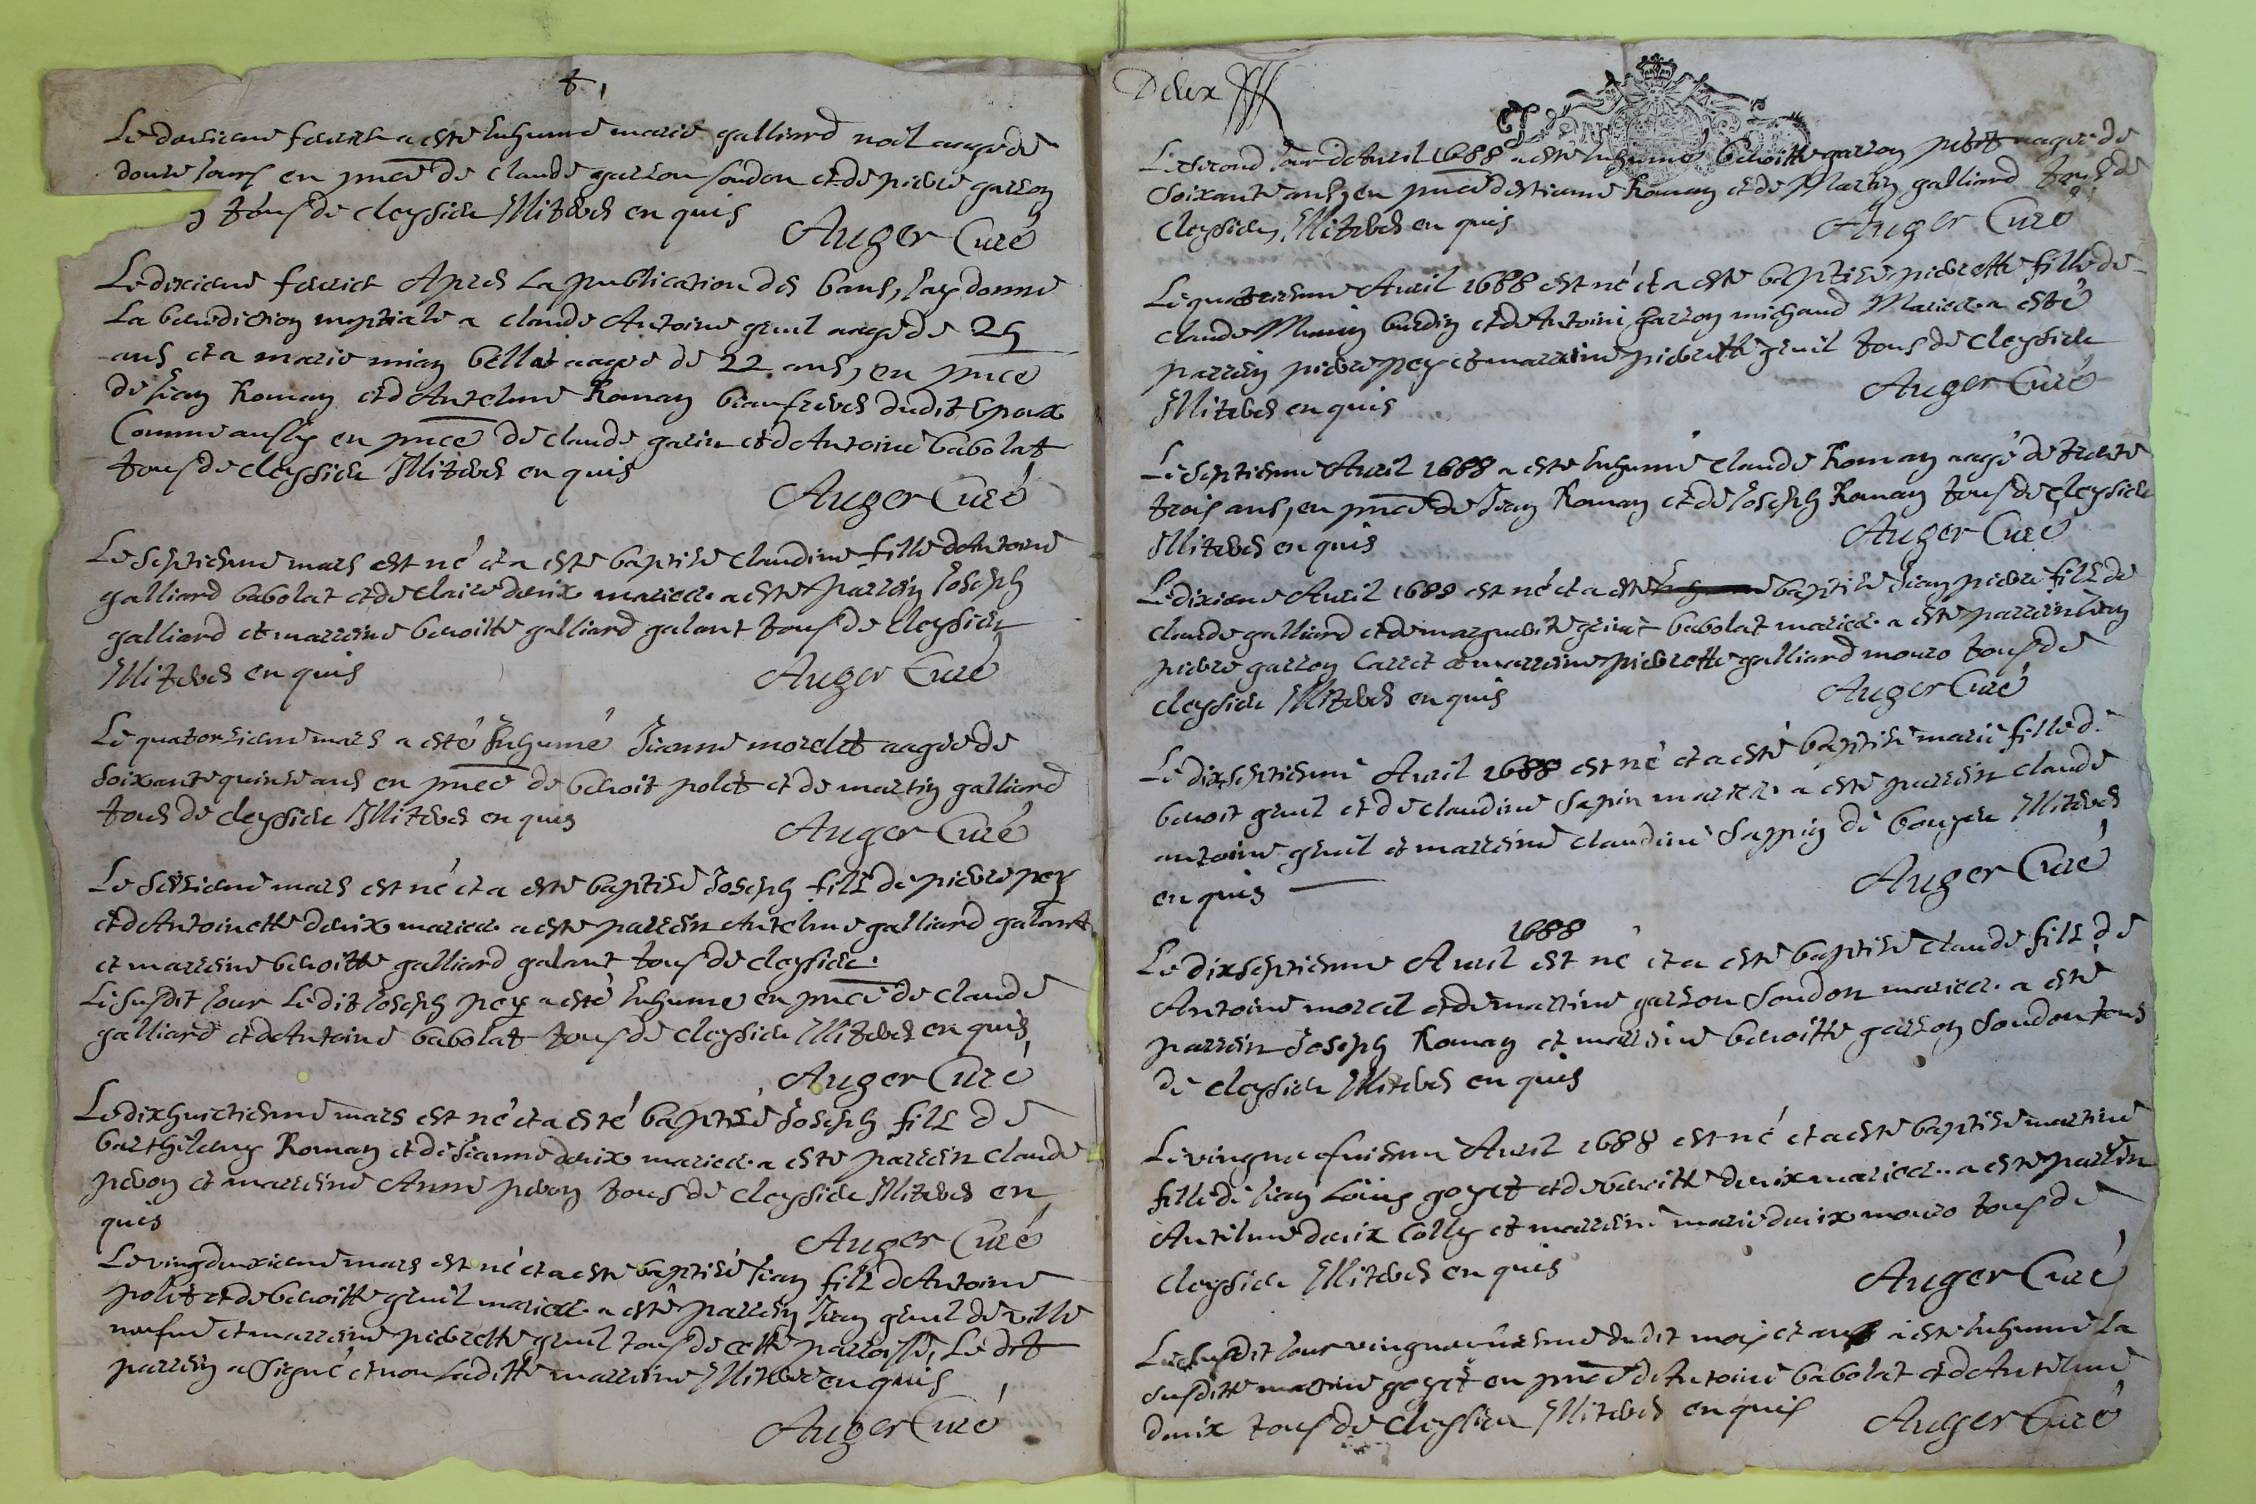 Le deusieme feurier a esté Inhumé marie galliard noil aagé de
douze Jours en pnce de claude garzon soudon et de pierre garzon
tous de cleysieu Illiterés enquis
Auger Curé
Le dixieme feurier Apres La publication des bans, J'ay donné
La benediction nuptiale a claude Antoine gruel aagé de 25
ans et a marie miam bellet aagée de 22 ans, en pnce
de Jean Roman et d'Antelme Roman beaufreres dudit Epoux
Comme aussy en pnce de claude garin et d'Antoine babolat
tous de cleysieu Illiterés enquis
Auger Curé
Le septieme mars est né et a esté baptisé claudine fille d'Antoine
galliard babolat et de claire derix mariez. a esté parrein Joseph
galliard et marreine benoitte galliard galant tous de cleysieu
Illiterés enquis
Auger Curé
Le quatorzieme mars a esté Inhumé Jeanne morelet aagée de
soixante quinze ans en pnce de benoit polet et de martin galliard
tous de cleysieu Illiterés enquis
Auger Curé
Le seizieme mars est né et a esté baptisé Joseph fils de pierre pey
et d'Antoinette derix mariez. a esté parrein Antelme galliard galant
et marreine benoitte galliard galant tous de cleysieu.
Le susdit Jour Ledit Joseph pey a esté Inhumé en pnce de claude
galliard et d'Antoine babolat tous de cleysieu Illiterés enquis
Auger Curé
Le dixhuictieme mars est né et a esté baptisé Joseph fils de
barthilemy Roman et de Jeanne derix mariez. a esté parrein claude
peron et marreine Anne peron tous de cleysieu Illiterés en
quis
Auger Curé
Le vingdeuxieme mars est né et a esté baptisé Jean fils d'Antoine
polet et de benoitte gruel mariez. a esté parrein Jean gruel de ville
neufue et marreine pierrette gruel tous de cette parroisse, Ledit
parrein a signé, et non Laditte marreine Illiterée enquis
Auger Curé
Deux
Le second Jour d'Auril 1688 a esté Inhumée benoitte garzon aagée de
soixante ans, en pnce d'estienne Roman et de Martin galliard tous de
Cleysieu, Illiterés enquis
Auger Curé
Le quatrieme Auril 1688 est né et a esté baptisée pierrette fille de
claude Miam burdin et de Antoine garzon michaud Mariez. a esté
parrein pierre pey et marreine pierrette gruel tous de Cleysieu
Illiterés enquis
Auger Curé
Le septieme Auril 1688 a esté Inhumé Claude Roman aagé de trente
trois ans, en pnce de Jean Roman et de Joseph Roman tous de cleysieu
Illiterés enquis
Auger Curé
Le dixieme Auril 1688 est né et a esté baptisé Jean pierre fils de
claude galliard et de marguerite babolat mariez. a esté parrein Jean
pierre garzon Carret et marreine pierrette galliard mouro tous de
cleysieu Illiterés enquis
Auger Curé
Le dixseptieme Auril 1688 est né et a esté baptisé marie fille de
benoit gruel et de claudine sapin mariez. a esté parrein claude
antoine gruel et marreine claudine sappin de Illiterés
enquis
Auger Curé
1688
Le dixseptieme Auril est né et a esté baptisé claude fils de
Antoine morel et de martine garzon soudon mariez. a esté
parrein Joseph Roman et marreine benoitte garzon soudon tous
de cleysieu Illiterés enquis
Le Auril 1688 est né et a esté baptisé martine
fille de Jean Louis goyet et de benoitte derix mariez. a esté parrein
Antelme derix Colly et marreine marie derix mouro tous de
cleysieu Illiterés enquis
Auger Curé
Le susdit Jour dudit mois et an a esté Inhumé La
susditte martine goyet en pnce d'Antoine babolat et d'Antelme
derix tous de cleysieu Illiterés enquis
Auger Curé